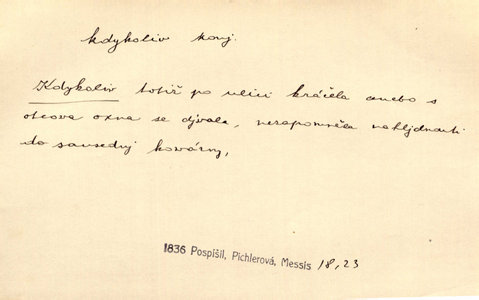 kdykoliv konj.
Kdykoliv totiž po ulici kráčela anebo s
otcova okna se dívala, nezapomněla nahlédnouti
do sousedný kovárny,
1836 Pospíšil, Pichlerová, Messis 18,23